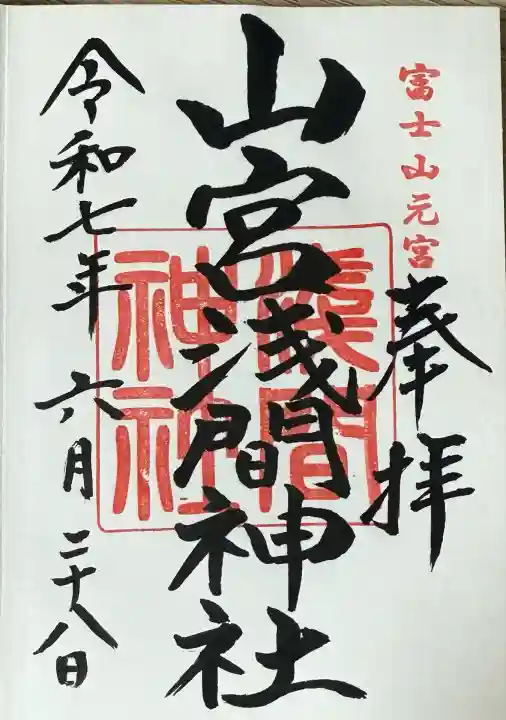 富士山元宮
奉拝
山宮浅間神社
淺間
神社
令和七年 六月 二十八日